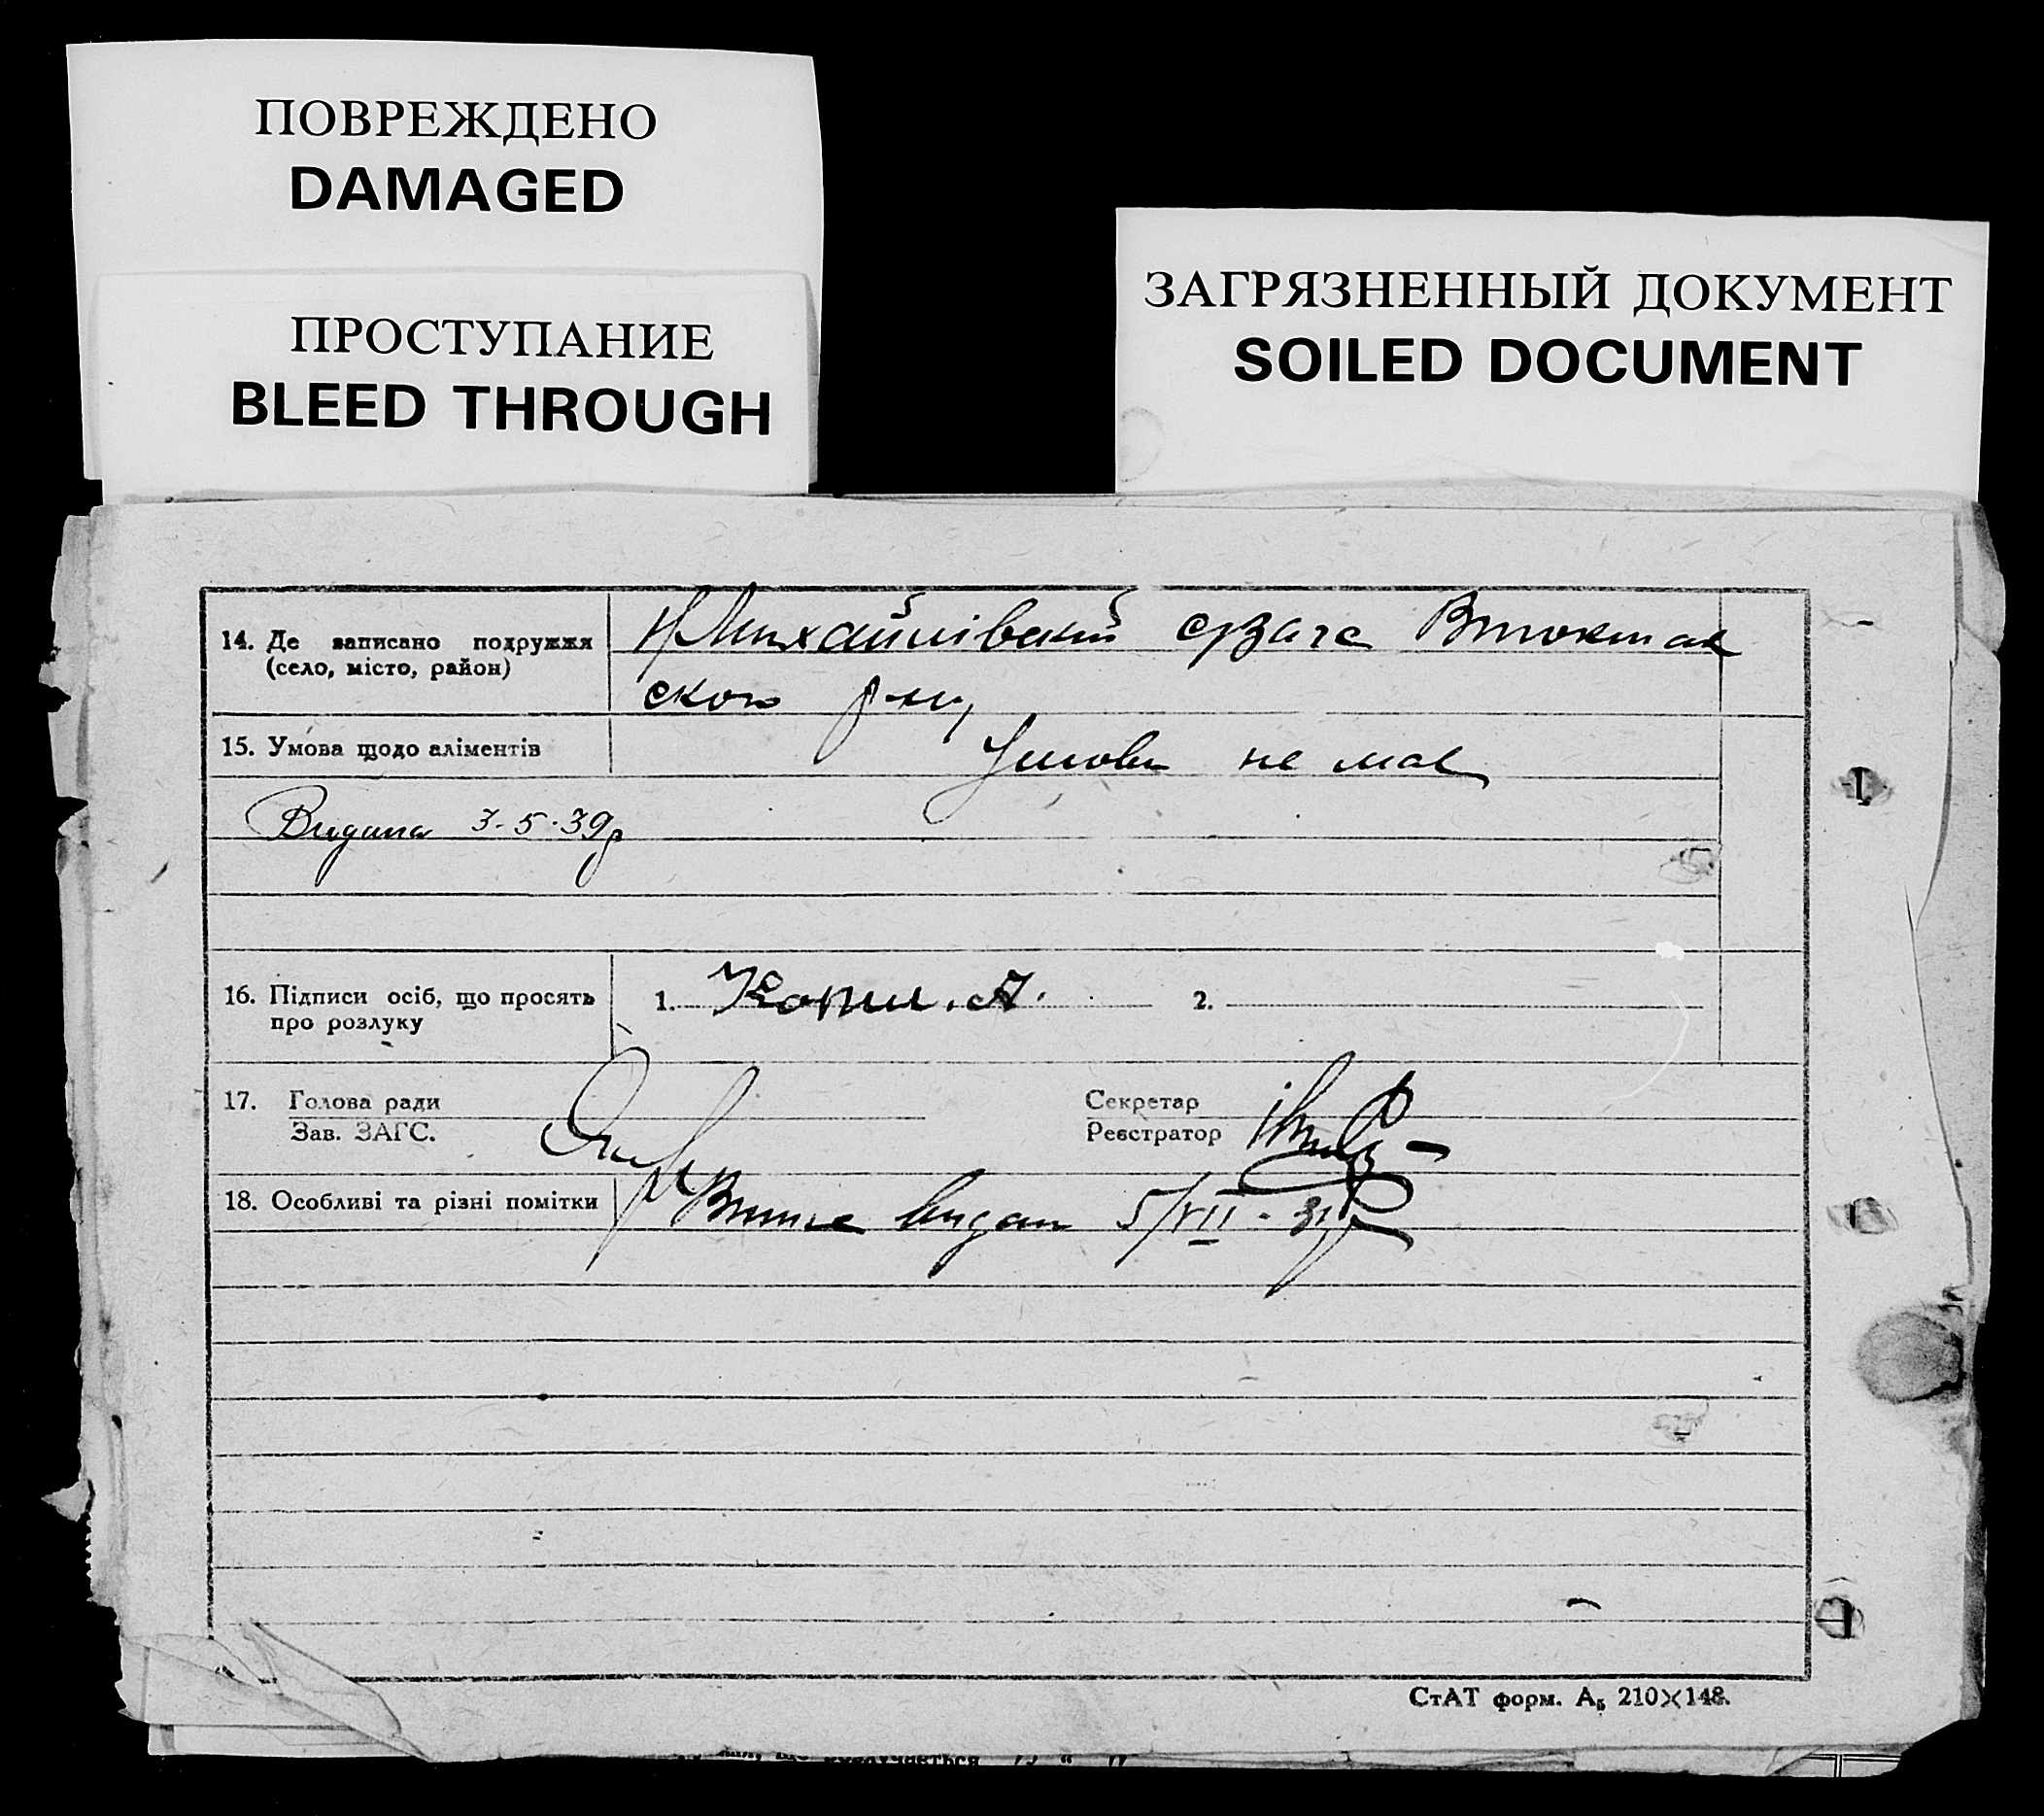 ПОВРЕЖДЕНО
DAMAGED
ПРОСТУПАНИЕ
BLEED THROUGH
ЗАГРЯЗНЕННЫЙ ДОКУМЕНТ
SOILED DOCUMENT
14. Де записано подружжя
(село, місто, район)
Михайлівський
ского р-ну
15. Умова щодо аліментів
Умови не має
Видана 3-5-39р
16. Підписи осіб, що просять
про розлуку
1.
2.
17. Голова ради
Зав. ЗАГС.
Секретар
Реєстратор
18. Особливі та різні помітки
видан 5/VII - 31р
СтАТ форм. А₅ 210×148.